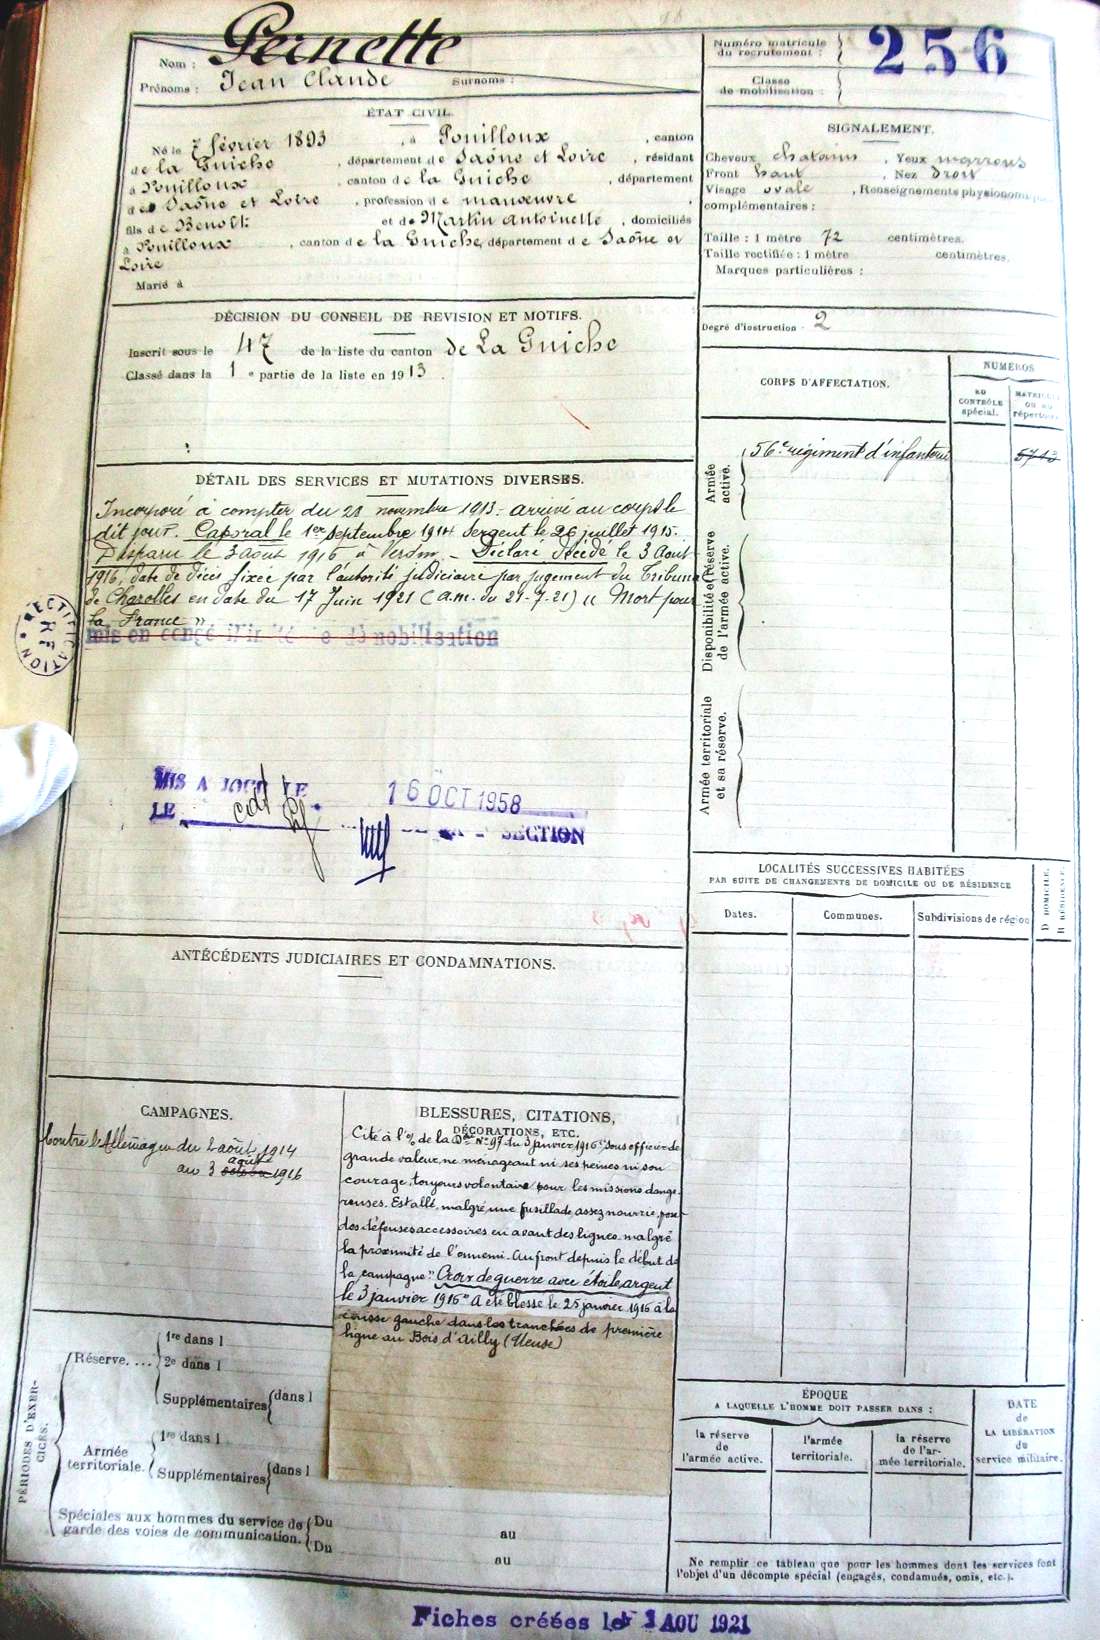 Nom : Pernette
Prénoms : Jean Claude Surnoms :
Numéro matricule
du recrutement : 256
Classe
de mobilisation :
ÉTAT CIVIL.
Né le 7 février 1893, à Pouilloux, canton
de la Guiche, département de Saône et Loire, résidant
à Pouilloux, canton de la Guiche, département
de Saône et Loire, profession de manœuvre,
fils de Benoît et de Martin Antoinette, domiciliés
à Pouilloux, canton de la Guiche, département de Saône et
Loire
Marié à
SIGNALEMENT.
Cheveux chatains, Yeux marrons
Front haut, Nez droit
Visage ovale, Renseignements physionomiques
complémentaires :
Taille : 1 mètre 72 centimètres.
Taille rectifiée : 1 mètre centimètres.
Marques particulières :
Degré d'instruction 2
DÉCISION DU CONSEIL DE REVISION ET MOTIFS.
Inscrit sous le 47 de la liste du canton de La Guiche
Classé dans la 1e partie de la liste en 1913.
CORPS D'AFFECTATION.
NUMÉROS
au
CONTRÔLE
spécial.
MATRICULE
OU AU
répertoire
Armée
active.
56e régiment d'infanterie
5713
Disponibilité et Réserve
de l'armée active.
Armée territoriale
et sa réserve.
DÉTAIL DES SERVICES ET MUTATIONS DIVERSES.
Incorporé à compter du 28 novembre 1913 - arrivé au corps le
dit jour. Caporal le 1er septembre 1914 Sergent le 26 juillet 1915.
Disparu le 3 Aout 1916 à Verdun - Déclaré décédé le 3 Aout
1916, date de décès fixée par l'autorité judiciaire par jugement du Tribunal
de Charolles en date du 17 Juin 1921 (a.m. du 21-7-21) "Mort pour
la France"
mis en congé illimité de démobilisation
RECTIFICATION
RF
MIS A JOUR LE
16 OCT 1958
LE
SECTION
LOCALITÉS SUCCESSIVES HABITÉES
PAR SUITE DE CHANGEMENTS DE DOMICILE OU DE RÉSIDENCE
Dates. Communes. Subdivisions de région
D DOMICILE.
R RÉSIDENCE.
ANTÉCÉDENTS JUDICIAIRES ET CONDAMNATIONS.
CAMPAGNES.
Contre l'Allemagne du 2 août 1914
août
au 3 octobre 1916
BLESSURES, CITATIONS,
DÉCORATIONS, ETC.
Cité à l'o/ de la Don No 97 du 3 janvier 1916 "Sous officier de
grande valeur, ne ménageant ni ses peines ni son
courage, toujours volontaire pour les missions dange-
reuses. Est allé, malgré une fusillade assez nourrie, poser
des défenses accessoires en avant des lignes malgré
la proximité de l'ennemi. Au front depuis le début de
la campagne". Croix de guerre avec étoile argent
le 3 janvier 1916" A été blessé le 25 janvier 1916 à la
cuisse gauche dans les tranchées de première
ligne au Bois d'Ailly (Meuse)
PÉRIODES D'EXER-
CICES.
Réserve. ...
1re dans l
2e dans l
Supplémentaires dans l
Armée
territoriale.
1re dans l
Supplémentaires dans l
Spéciales aux hommes du service de
garde des voies de communication.
Du au
Du au
ÉPOQUE
A LAQUELLE L'HOMME DOIT PASSER DANS :
la réserve
de
l'armée active.
l'armée
territoriale.
la réserve
de l'ar-
mée territoriale.
DATE
de
LA LIBÉRATION
du
service militaire.
Ne remplir ce tableau que pour les hommes dont les services font
l'objet d'un décompte spécial (engagés, condamnés, omis, etc.).
Fiches créées le 1 AOU 1921